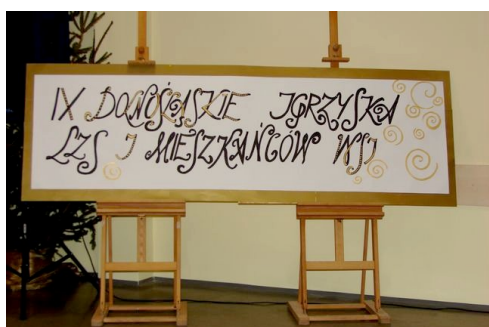 IX DONOŚLĄSKIE IGRZYSKA
LZS I MIESZKAŃCÓW WSI